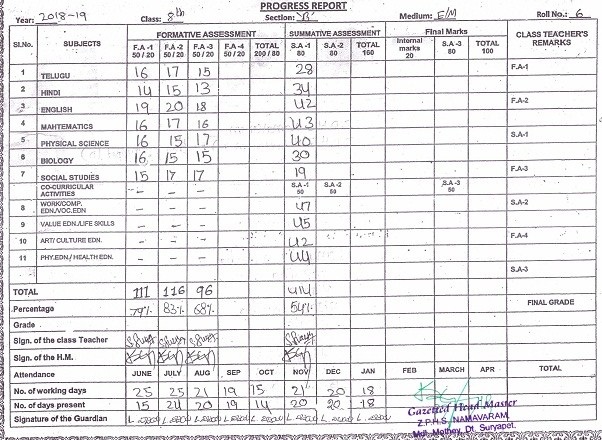 PROGRESS REPORT
Year: 2018-19 Class: 8th Section: "B" Medium: E/M Roll No.: 6
Sl.No. SUBJECTS FORMATIVE ASSESSMENT SUMMATIVE ASSESSMENT Final Marks CLASS TEACHER'S REMARKS
F.A -1 50 / 20 F.A -2 50 / 20 F.A -3 50 / 20 F.A -4 50 / 20 TOTAL 200 / 80 S.A -1 80 S.A -2 80 TOTAL 160 Internal marks 20 S.A -3 80 TOTAL 100
1 TELUGU 16 17 15 28 F.A-1
2 HINDI 14 15 13 34
3 ENGLISH 19 20 18 42 F.A-2
4 MAHTEMATICS 16 17 16 43
5 PHYSICAL SCIENCE 16 15 17 40 S.A-1
6 BIOLOGY 16 15 15 30
7 SOCIAL STUDIES 15 17 17 19 F.A-3
CO-CURRICULAR ACTIVITIES - - - S.A -1 50 S.A -2 50 S.A -3 50
8 WORK/COMP. EDN./VOC.EDN - - - 47 S.A-2
9 VALUE EDN./LIFE SKILLS - - - 45
10 ART/ CULTURE EDN. - - - 42 F.A-4
11 PHY.EDN./ HEALTH EDN. - - - 44
S.A-3
TOTAL 111 116 96 414
Percentage 79% 83% 68% 54% FINAL GRADE
Grade
Sign. of the class Teacher
Sign. of the H.M.
Attendance JUNE JULY AUG SEP OCT NOV DEC JAN FEB MARCH APR TOTAL
No. of working days 25 25 21 19 15 21 20 18
No. of days present 15 24 20 19 14 20 20 18
Signature of the Guardian
Gazetted Head Master
Z.P.H.S. NAMAVARAM,
Mdl. Mothey, Dt. Suryapet.